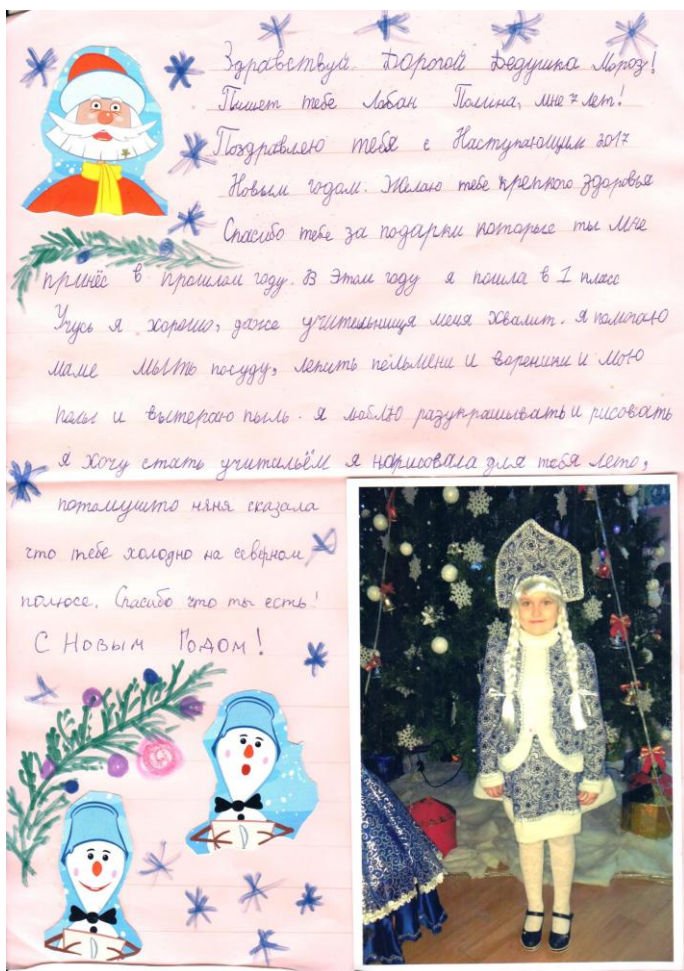 Здравствуй Дорогой Дедушка Мороз!
Пишет тебе Лобан Полина, мне 7 лет!
Поздравлею тебя с Наступающим 2017
Новым годом. Желаю тебе крепкого здоровья
Спасибо тебе за подарки которые ты мне
принёс в прошлом году. В этом году я пошла в 1 класс
Учусь я хорошо, даже учительница меня хвалит. Я помогаю
маме мыть посуду, лепить пельмени и вареники и мою
полы и вытераю пыль. Я люблю разукрашывать и рисовать
Я хочу стать учительём я нарисовала для тебя лето,
потомушто няня сказала
что тебе холодно на северном
полюсе. Спасибо что ты есть!
С Новым Годом!